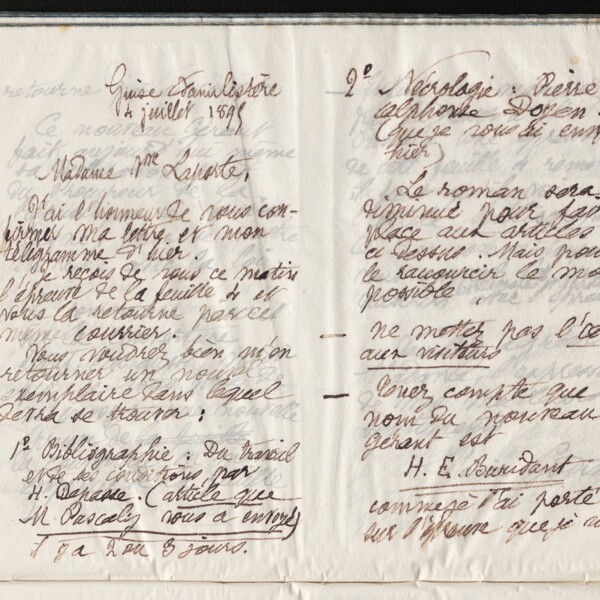 Guise Familistère
4 juillet 1895
Madame Vve Laporte,
J'ai l'honneur de vous con-
firmer ma lettre et mon
télégramme d'hier.
Je reçois de vous ce matin
l'épreuve de la feuille 4 et
vous la retourne par ce
même courrier.
Vous voudrez bien m'en
retourner un nouvel
exemplaire dans lequel
devra se trouver :
1º Bibliographie : Du travail
et de ses conditions, par
H. Depasse. (article que
M. Pascaly vous a envoyé)
il y a 2 ou 3 jours.
2º Nécrologie : Pierre
alphonse Doyen.
(que je vous ai
hier)
Le roman sera
diminué pour
place aux articles
ci dessus. Mais
le raccourcir le
possible.
— ne mettez pas
aux visiteurs
— Tenez compte que
nom du nouveau
gérant est
H. E. Buridant
comme je l'ai porté
sur l'épreuve que je